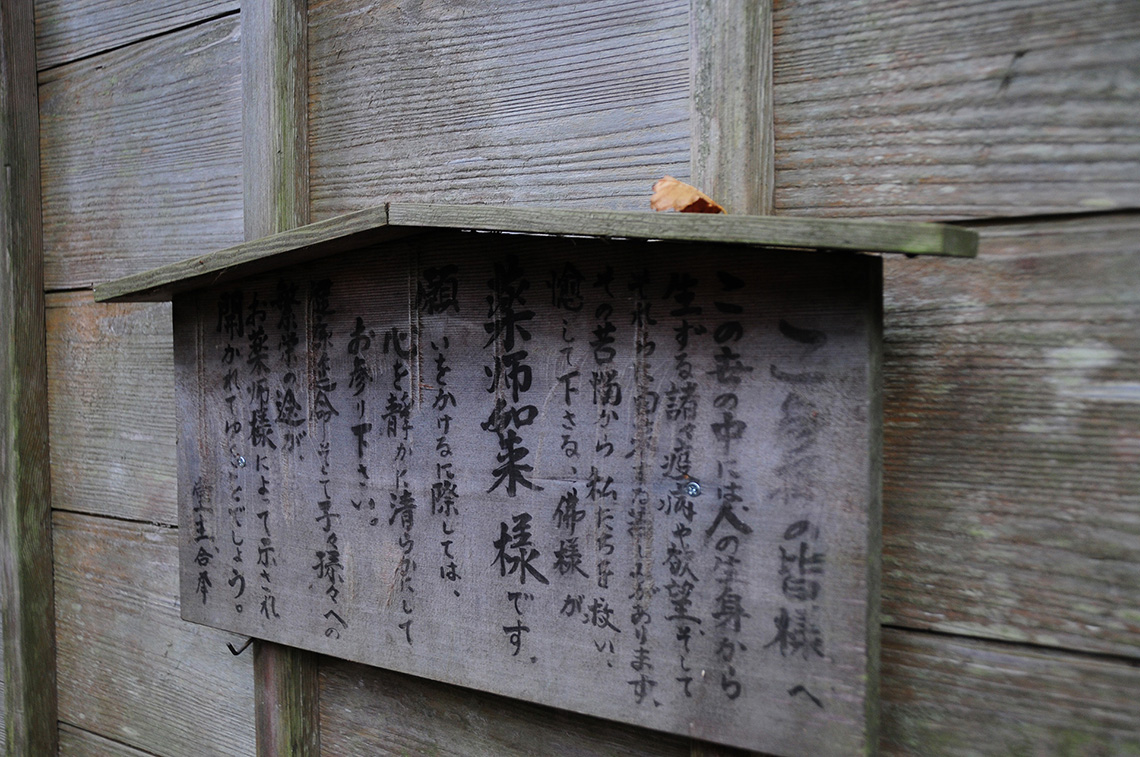 ご参拝の皆様へ
この世の中には人の生身から
生ずる諸々疲病や欲望そして
それらに由来する苦しみがあります、
その苦悩から私たちを救い、
癒して下さる、佛様が
薬師如来様です。
願いをかけるに際しては、
心を静かに清らかにして
お参り下さい。
そして子々孫々への
繁栄の途が、
お薬師様によって示され
開かれてゆくことでしょう。
合掌